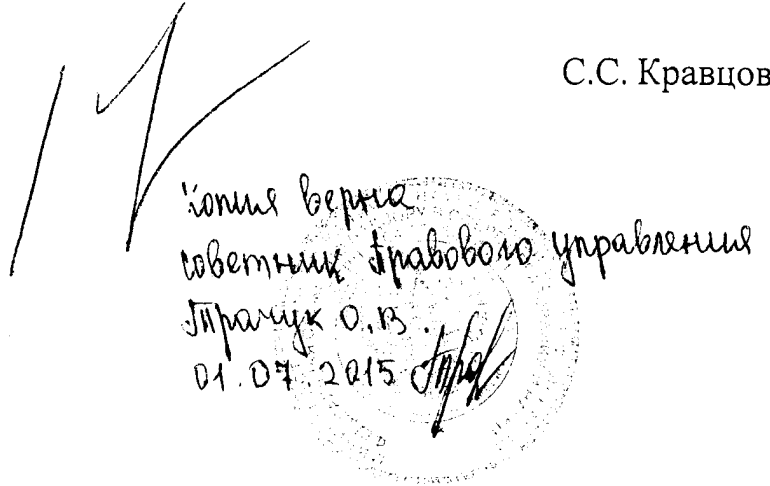 С.С. Кравцов
Копия верна
советник Правового управления
Трачук О.В.
01.07.2015